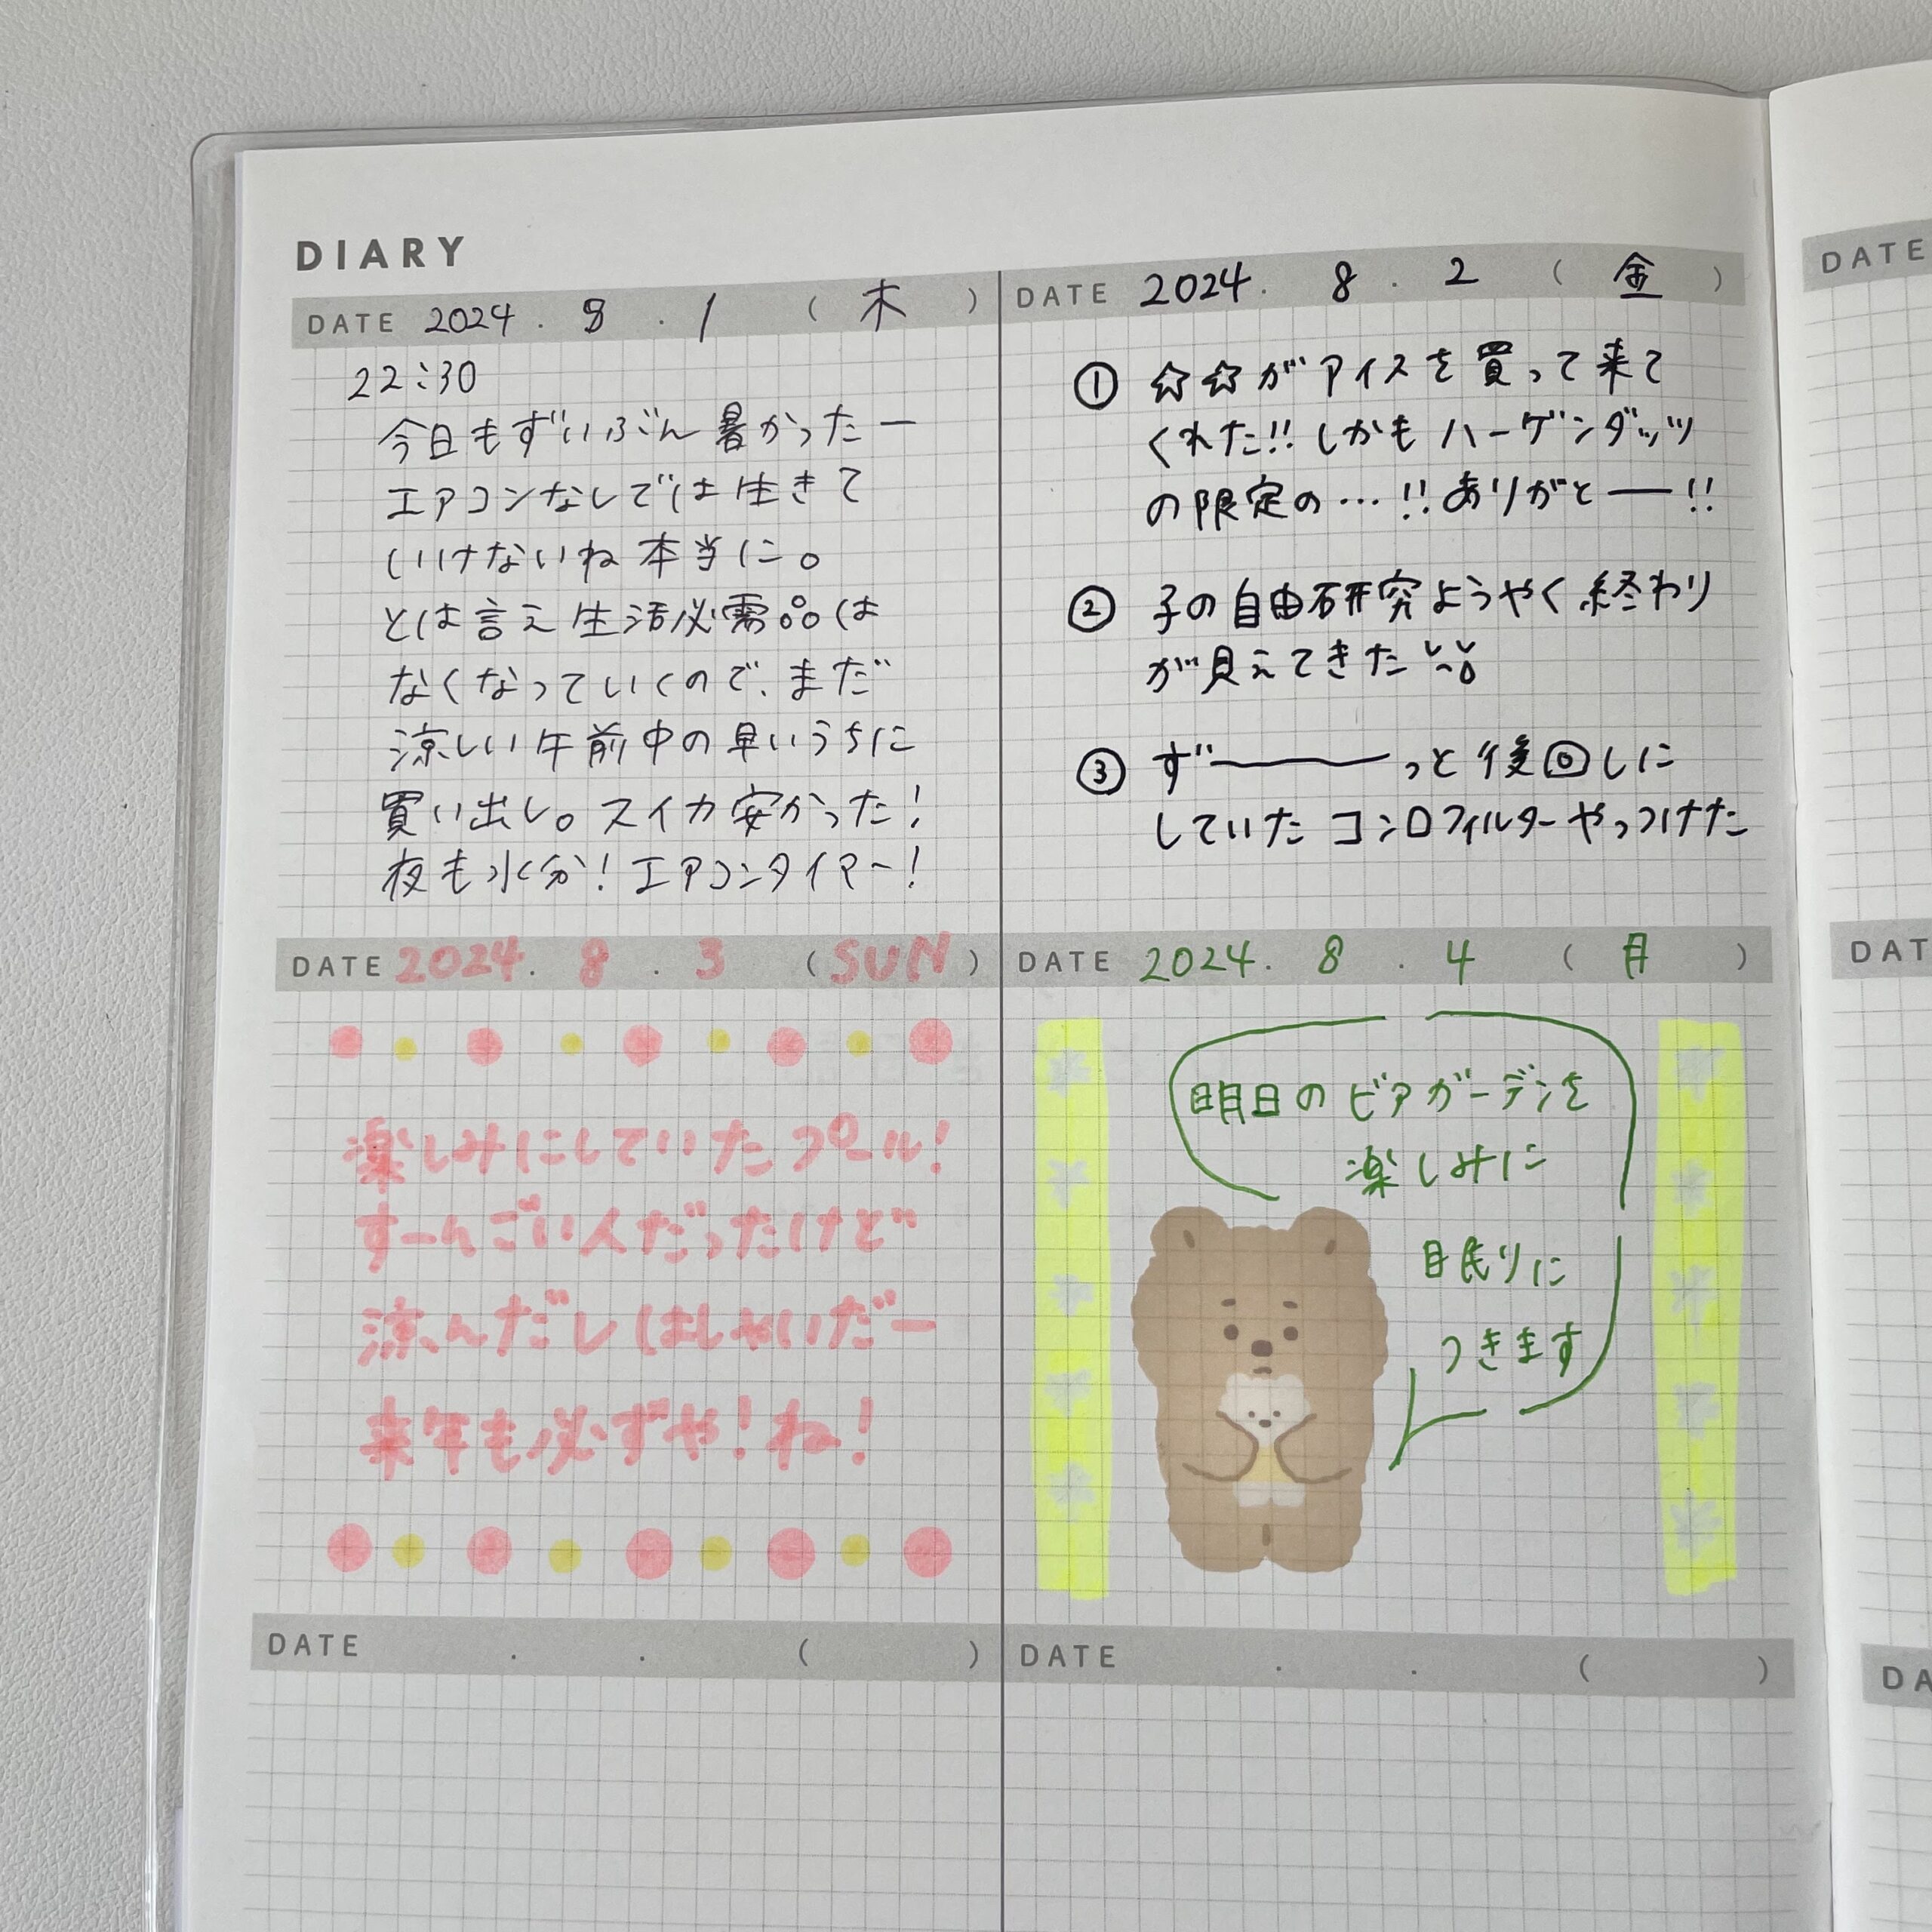 DIARY
DATE 2024 . 8 . 1 ( 木 )
22:30
今日もずいぶん暑かったー
エアコンなしでは生きて
いけないね本当に。
とは言え生活必需品は
なくなっていくので、まだ
涼しい午前中の早いうちに
買い出し。スイカ安かった!
夜も水分!エアコンタイマー!
DATE 2024 . 8 . 2 ( 金 )
① ☆☆がアイスを買って来て
くれた!!しかもハーゲンダッツ
の限定の…!!ありがとー!!
② 子の自由研究ようやく終わり
が見えてきた
③ ずーーーっと後回しに
していたコンロフィルターやっつけた
DATE 2024 . 8 . 3 ( SUN )
楽しみにしていたプール!
すーんごい人だったけど
涼んだしはしゃいだー
来年も必ずや!ね!
DATE 2024 . 8 . 4 ( 月 )
明日のビアガーデンを
楽しみに
眠りに
つきます
DATE . . ( )
DATE . . ( )
DATE
DAT
DA